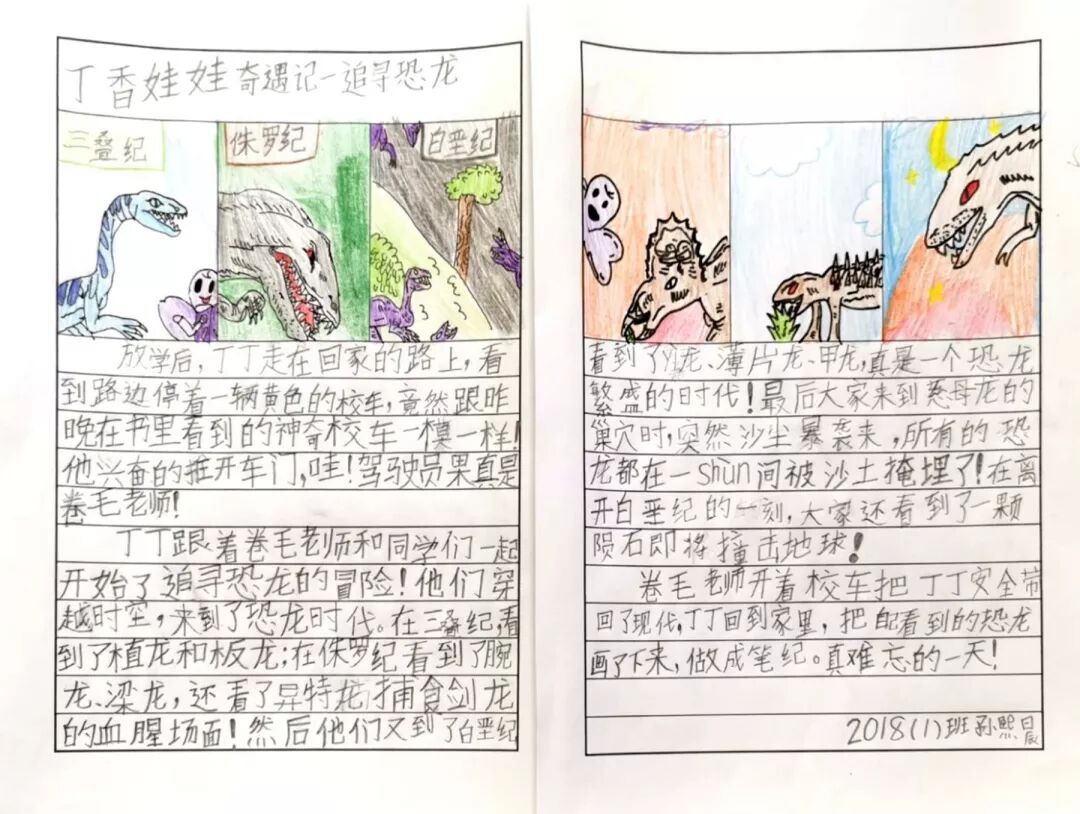 丁香娃娃奇遇记-追寻恐龙
三叠纪
侏罗纪
白垩纪
放学后,丁丁走在回家的路上,看
到路边停着一辆黄色的校车,竟然跟昨
晚在书里看到的神奇校车一模一样!
他兴奋的推开车门,哇!驾驶员果真是
卷毛老师!
丁丁跟着卷毛老师和同学们一起
开始了追寻恐龙的冒险!他们穿
越时空,来到了恐龙时代。在三叠纪,看
到了植龙和板龙;在侏罗纪看到了腕
龙、梁龙,还看了异特龙捕食剑龙
的血腥场面!然后他们又到了白垩纪
看到了龙、薄片龙、甲龙,真是一个恐龙
繁盛的时代!最后大家来到慈母龙的
巢穴时,突然沙尘暴袭来,所有的恐
龙都在一shùn间被沙土掩埋了!在离
开白垩纪的一刻,大家还看到了一颗
陨石即将撞击地球!
卷毛老师开着校车把丁丁安全带
回了现代,丁丁回到家里,把自己看到的恐龙
画了下来,做成笔纪。真难忘的一天!
2018(1)班孙熙晨